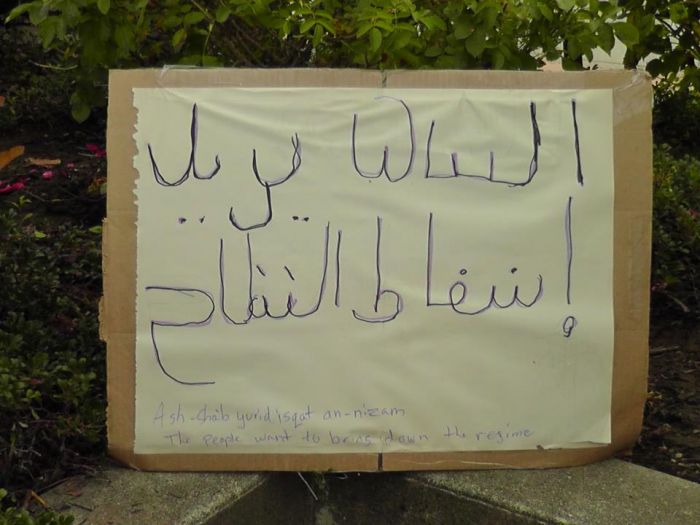 الشعب يريد
إسقاط النظام
Ash-sha'b yurid isqat an-nizam
The people want to bring down the regime